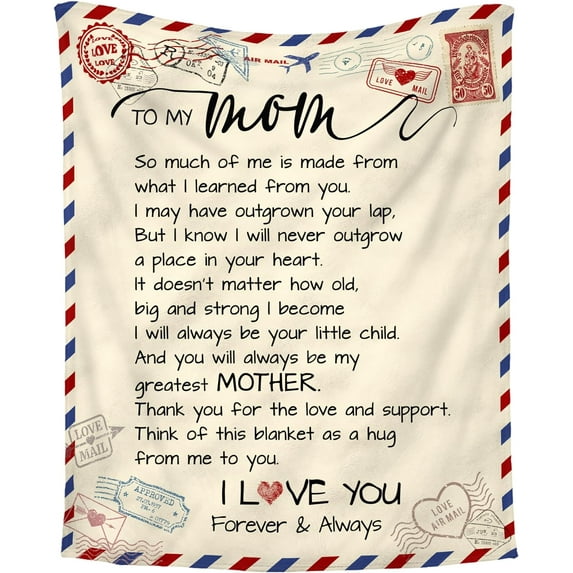 LOVE
LOVE
LOVE
AIR MAIL
LOVE MAIL
50 50
TO MY mom
So much of me is made from
what I learned from you.
I may have outgrown your lap,
But I know I will never outgrow
a place in your heart.
It doesn't matter how old,
big and strong I become
I will always be your little child.
And you will always be my
greatest MOTHER.
Thank you for the love and support.
Think of this blanket as a hug
from me to you.
I LOVE YOU
Forever & Always
LOVE
MAIL
APPROVED
LOVE
AIR MAIL